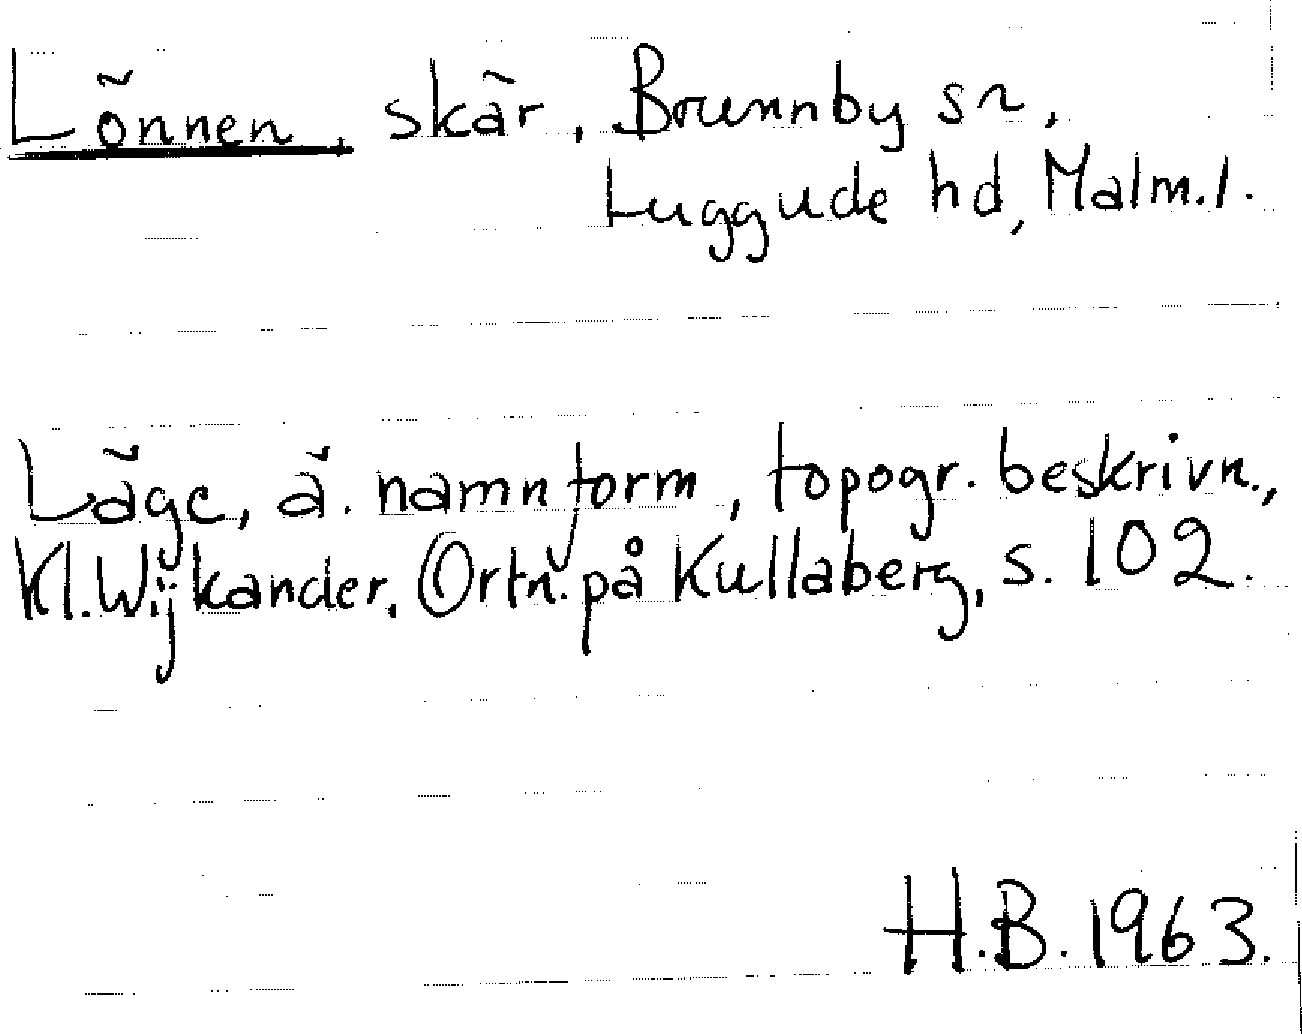 Lönnen, skär, Brunnby sn,
Luggude hd, Malm. l.
Läge, ä. namnform, topogr. beskrivn.,
Kl. Wijkander, Ortn. på Kullaberg, s. 102.
H.B. 1963.